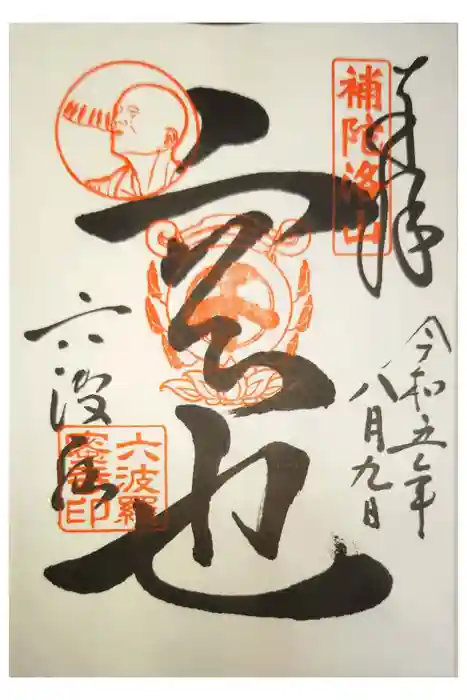 奉拝
補陀洛山
令和五年
八月九日
空也
六波
六波羅
蜜寺印